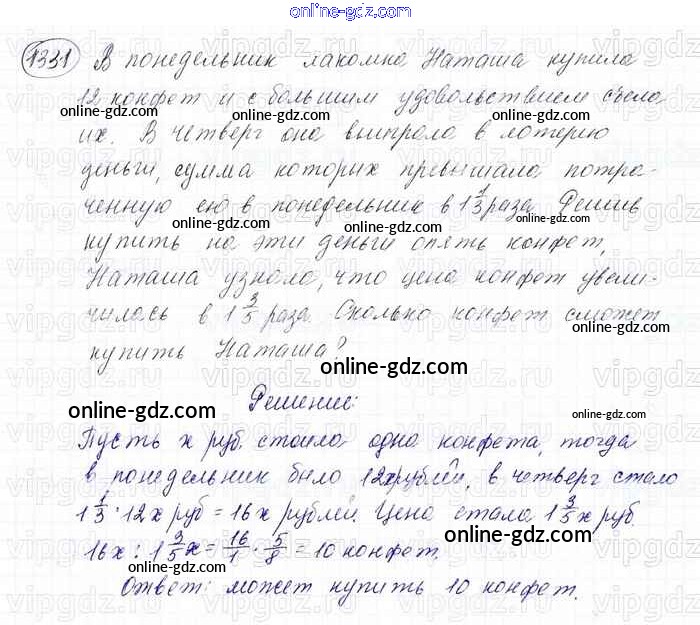 online-gdz.com
1331 В понедельник лакомка Наташа купила
12 конфет и с большим удовольствием съела
их. В четверг она выиграла в лотерею
деньги, сумма которых превышала потра-
ченную ею в понедельник в 1 1/3 раза. Решив
купить на эти деньги опять конфет,
Наташа узнала, что цена конфет увели-
чилась в 1 3/5 раза. Сколько конфет сможет
купить Наташа?
Решение:
Пусть х руб. стоила одна конфета, тогда
в понедельник было 12х рублей, в четверг стало
1 1/3 · 12х руб = 16х рублей. Цена стала 1 3/5 х руб.
16х : 1 3/5 х = 16/1 · 5/8 = 10 конфет.
Ответ: может купить 10 конфет.